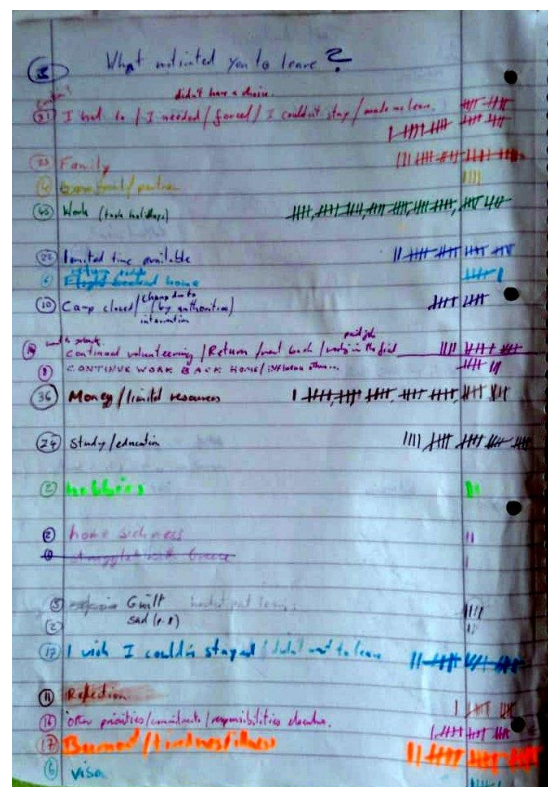 What motivated you to leave?
didn't have a choice
31 I had to / I needed / forced / I couldn't stay / made me leave.
23 Family
4 / partner
45 Work (took holidays)
22 limited time available
6 home
10 Camp closed / change due to
(by authorities)
14 continued volunteering / Return / went back / in the field
paid job
8 CONTINUE WORK BACK HOME /
36 Money / limited resources
24 study / education
hobbies
2 home sickness
struggled with Greece
5 Guilt
2 sad
17 I wish I could've stayed / didn't want to leave
11 Reflection
16 other priorities / commitments / responsibilities elsewhere.
17 Burned / Tiredness / illness
6 visa